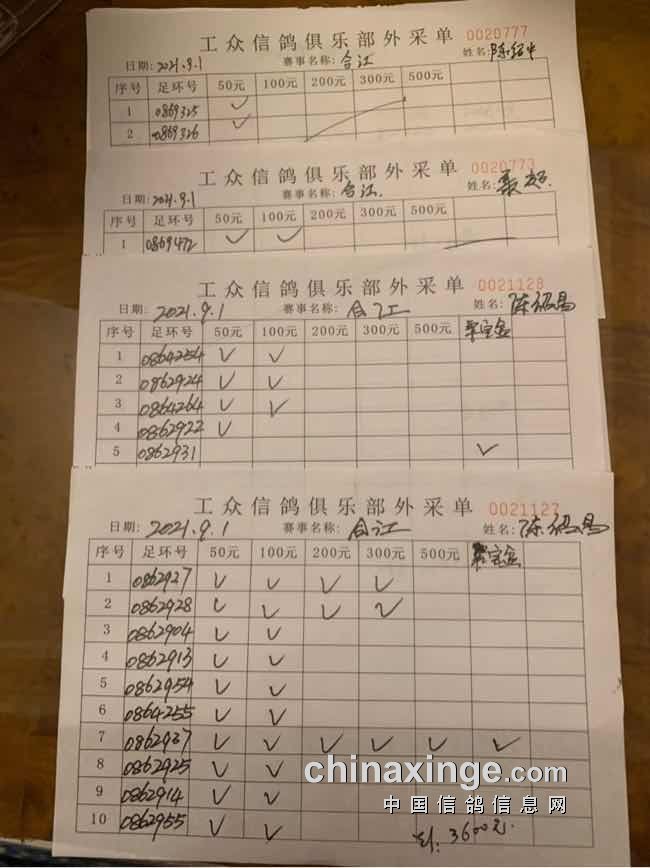 工众信鸽俱乐部外采单 0020777
日期: 2021.9.1 赛事名称: 合江 姓名: 陈绍中
序号 足环号 50元 100元 200元 300元 500元
1 0869325 ✓
2 0869326 ✓
工众信鸽俱乐部外采单 0020773
日期: 2021.9.1 赛事名称: 合江 姓名:
序号 足环号 50元 100元 200元 300元 500元
1 0869472 ✓ ✓
工众信鸽俱乐部外采单 0021128
日期: 2021.9.1 赛事名称: 合江 姓名: 陈绍昌
序号 足环号 50元 100元 200元 300元 500元
1 0864254 ✓ ✓
2 0862924 ✓ ✓
3 0864264 ✓ ✓
4 0862922 ✓
5 0862931 ✓
工众信鸽俱乐部外采单 0021127
日期: 2021.9.1 赛事名称: 合江 姓名: 陈绍昌
序号 足环号 50元 100元 200元 300元 500元
1 0862927 ✓ ✓ ✓ ✓
2 0862928 ✓ ✓ ✓ ✓
3 0862904 ✓ ✓
4 0862913 ✓ ✓
5 0862954 ✓ ✓
6 0864255 ✓ ✓
7 0862937 ✓ ✓ ✓ ✓ ✓ ✓
8 0862925 ✓ ✓
9 0862914 ✓ ✓
10 0862955 ✓ ✓
3600元
chinaxinge.com
中国信鸽信息网